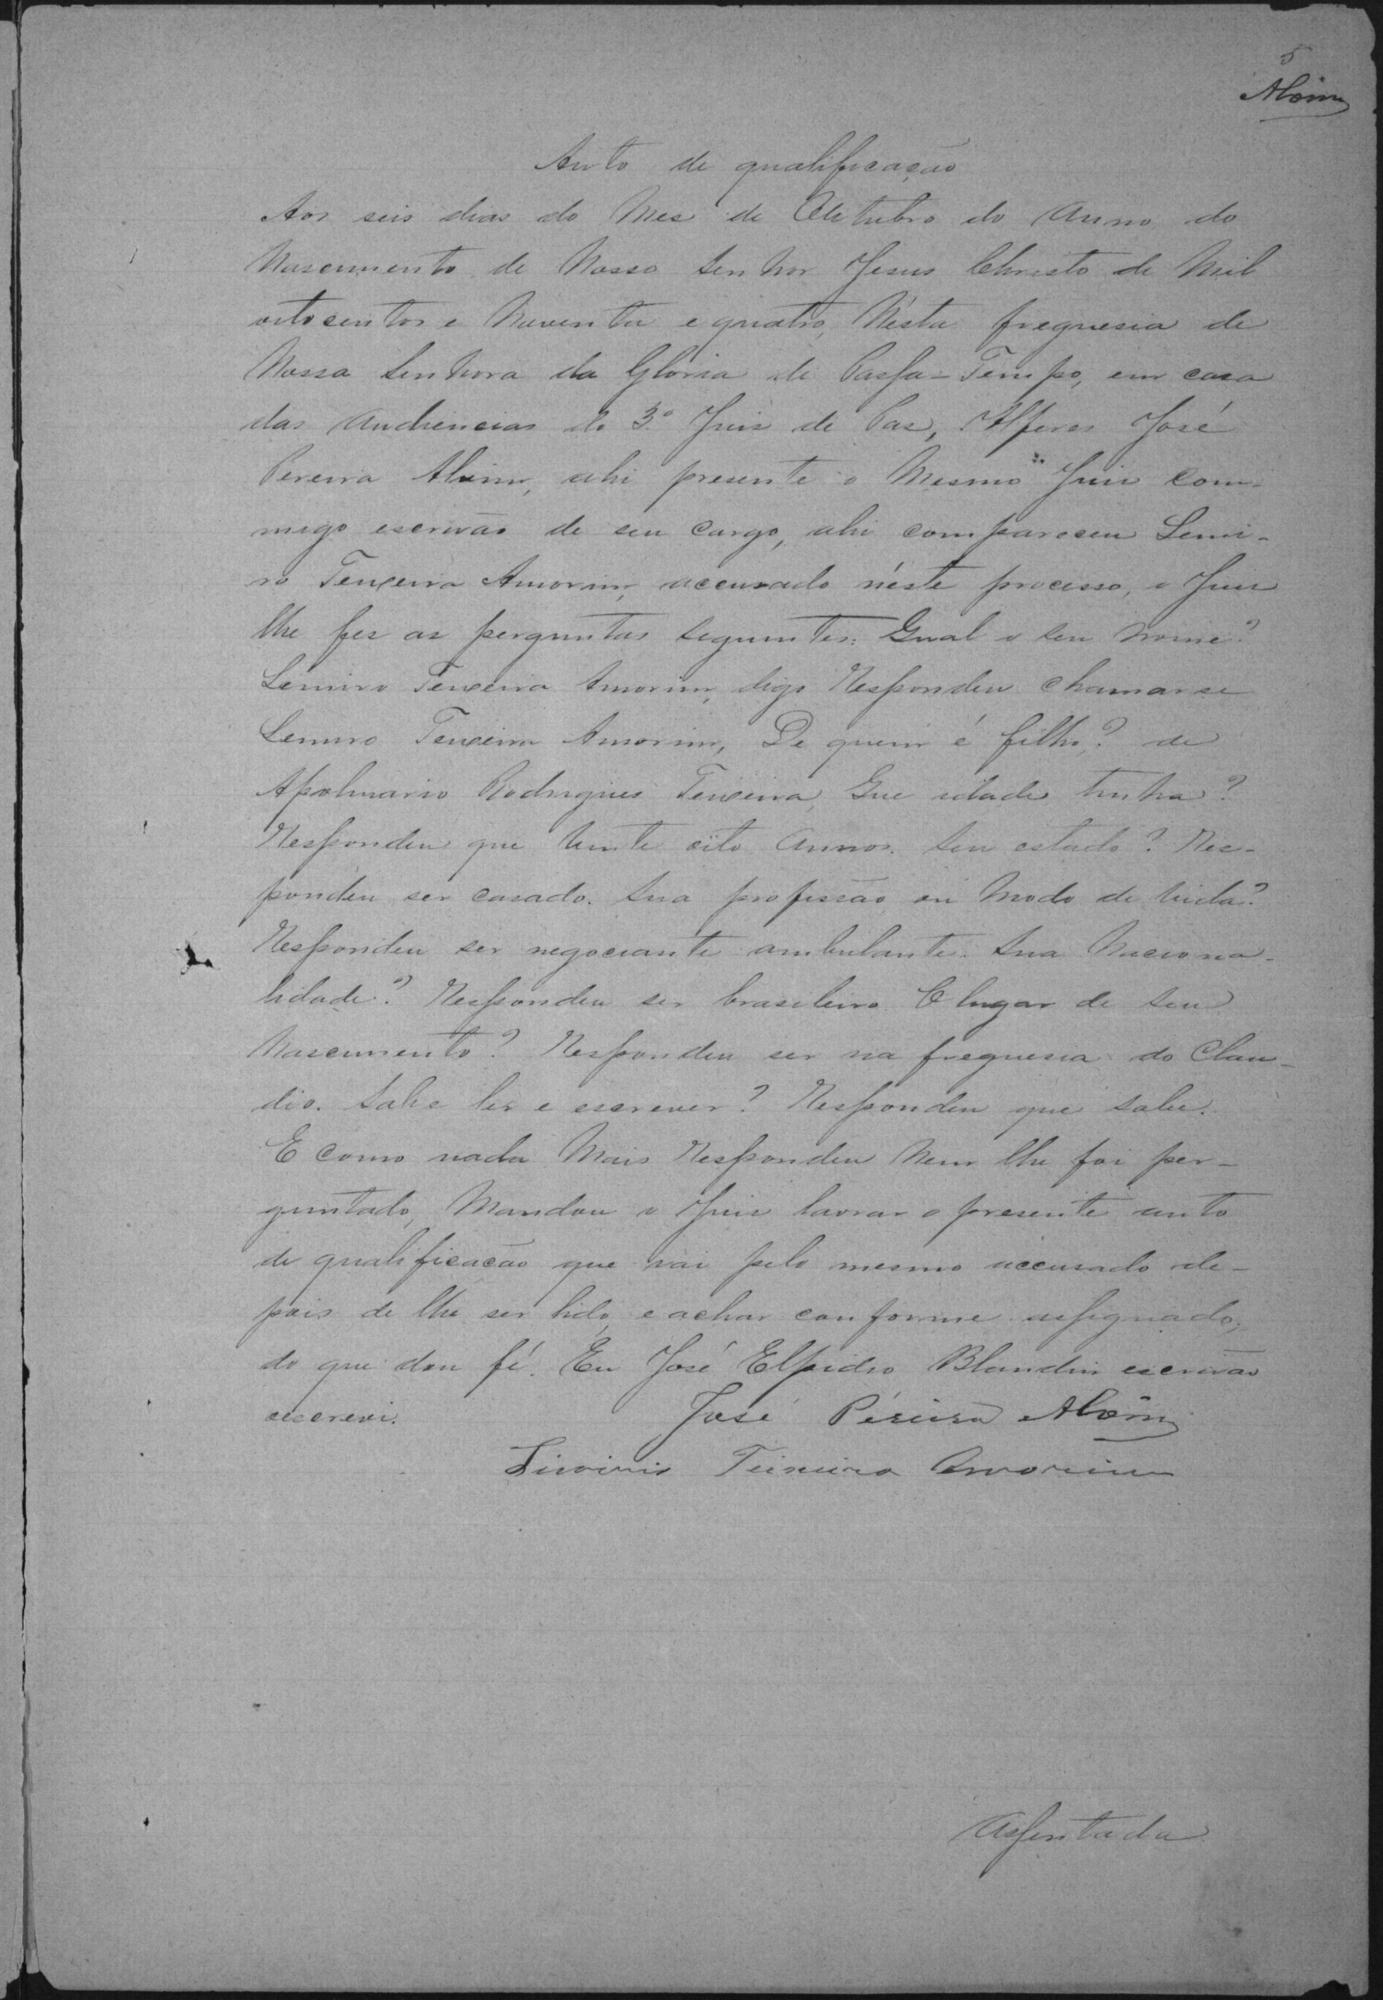 5
Alvim
Auto de qualificação
Aos seis dias do Mes de Oitubro do Anno do
Nascimento de Nosso Senhor Jesus Christo de Mil
oitosentos e Noventa e quatro, N'esta freguesia de
Nossa Senhora da Gloria de Passa-Tempo, em casa
das Audiencias do 3.º Juis de Pas, Alferes José
Pereira Alvim, ahi presente o Mesmo Juis com-
migo escrivão de seu cargo, ahi compareceu Lemi-
ro Teixeira Amorim, accusado n'éste processo, o Juis
lhe fes as perguntas seguintes: Qual o seu nome?
Lemiro Teixeira Amorim, digo Respondeu chamarse
Lemiro Teixeira Amorim, De quem é filho? de
Apolinario Rodrigues Teixeira, Que idade tinha?
Respondeu que Vinte oito Annos. Seu estado? Res-
pondeu ser casado. Sua profissão ou Modo de Vida?
Respondeu ser negociante ambulante. Sua Naciona-
lidade? Respondeu ser brasileiro. O lugar de seu
Nascimento? Respondeu ser na freguesia do Clau-
dio. Sabe ler e escrever? Respondeu que sabe.
E como nada Mais Respondeu Nem lhe foi per-
guntado, Mandou o Juis lavrar o presente auto
de qualificação que vai pelo mesmo accusado de-
pois de lhe ser lido, e achar conforme assignado,
do que dou fé. Eu José Elpidio Blandin escrivão
escrevi. José Péreira Alvim
Teixeira Amorim
Assentada